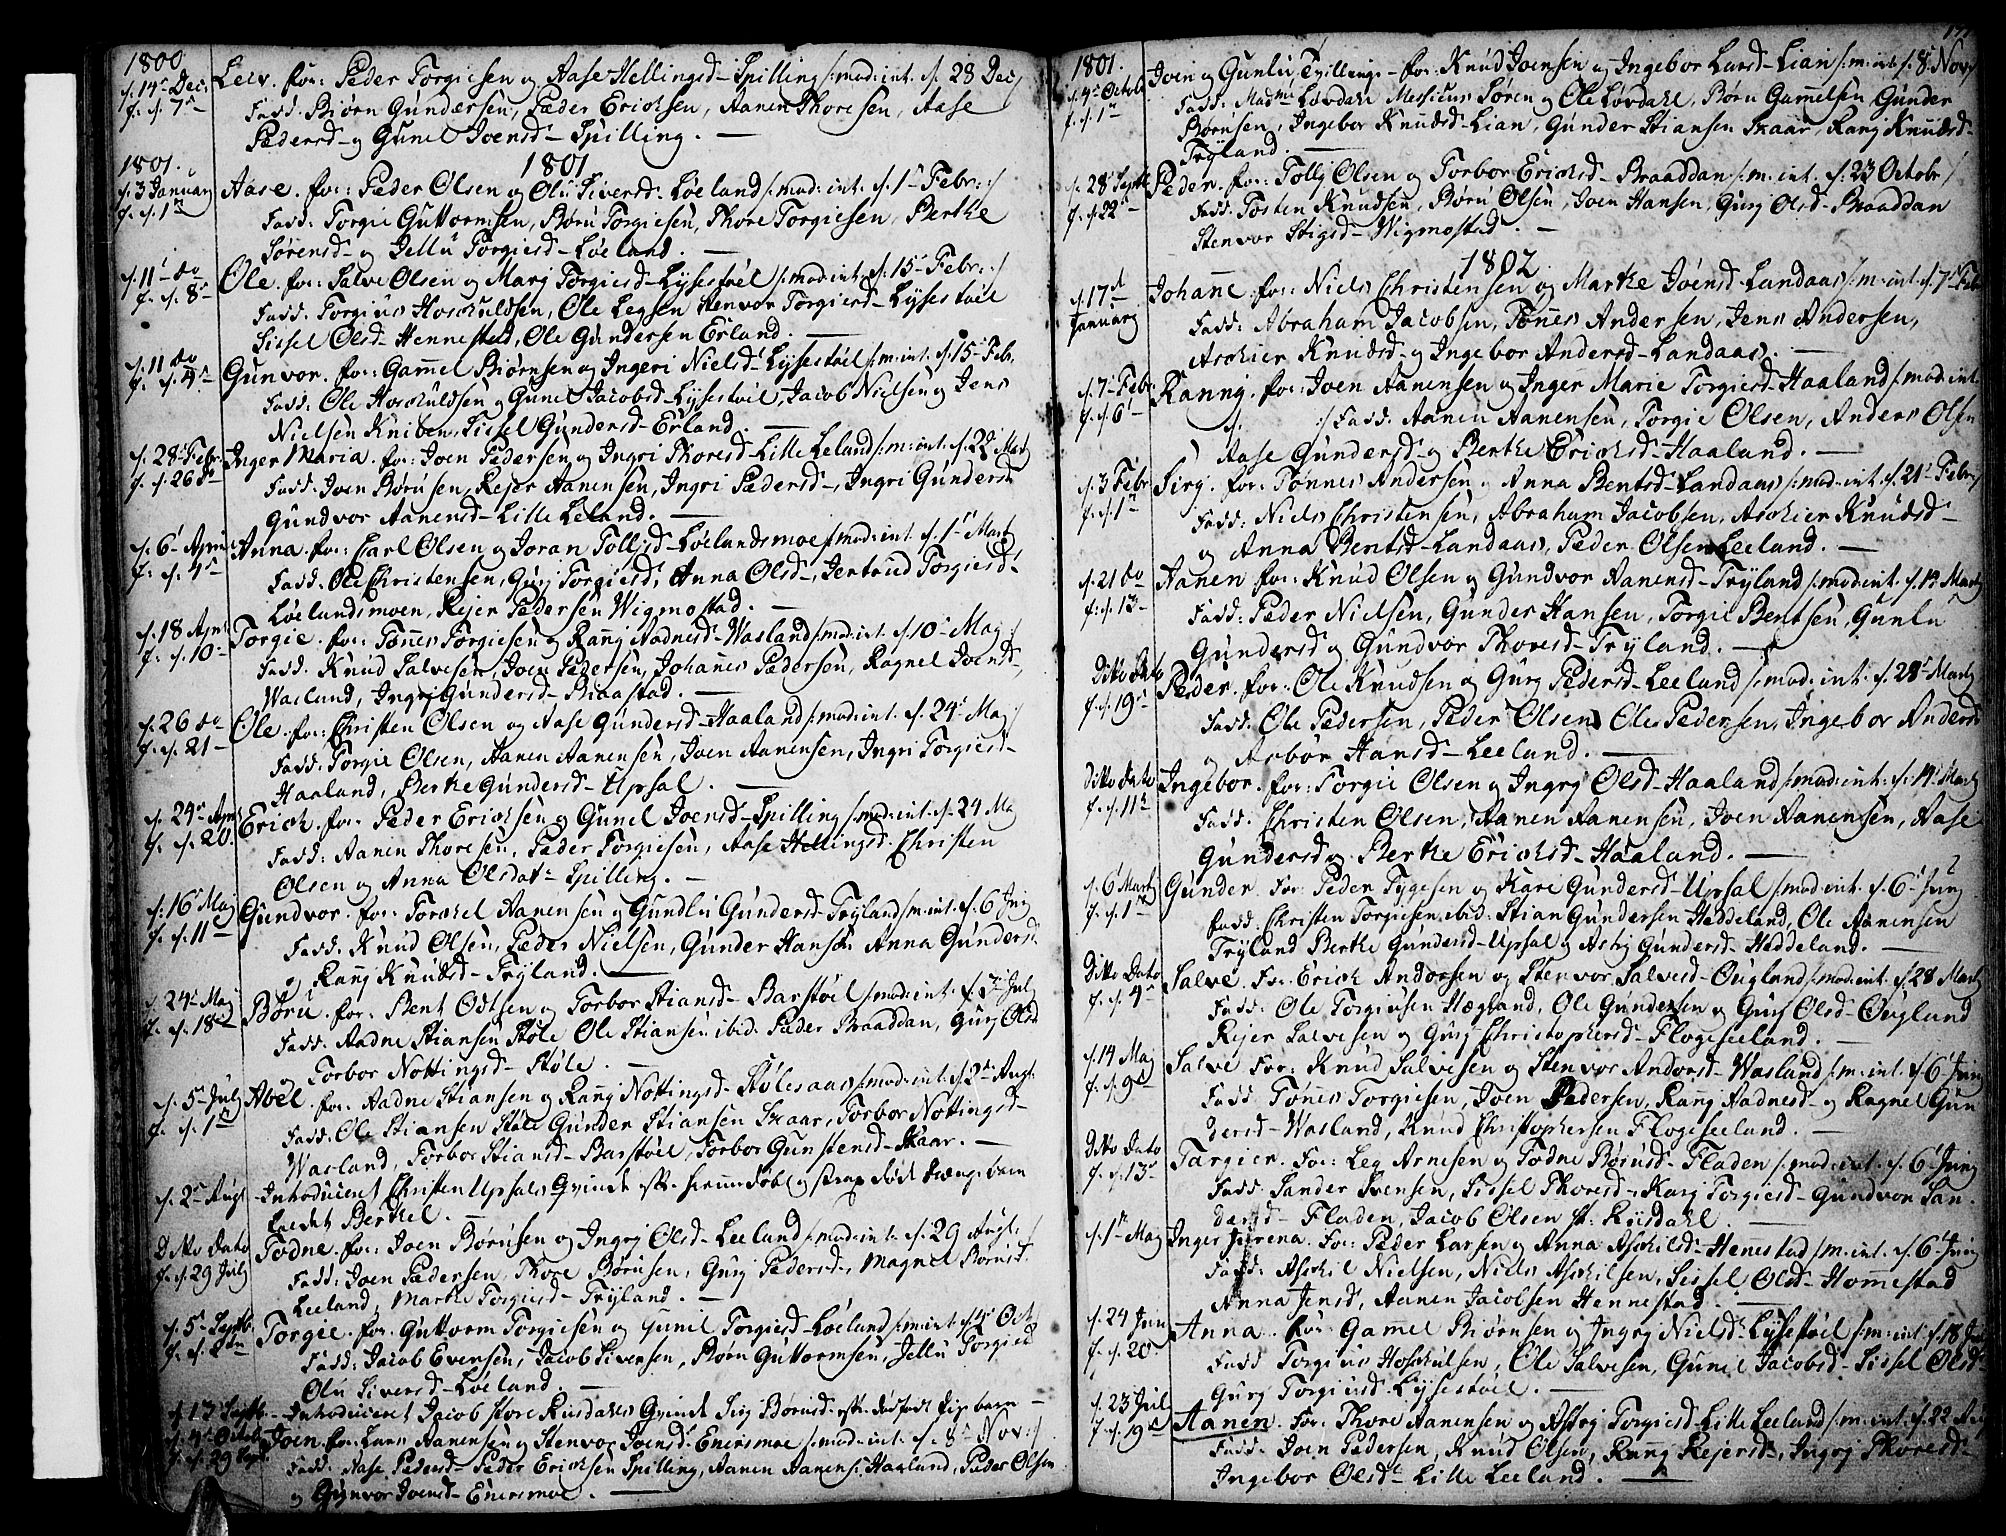 1800
d. 14 Dec. Leiv. for: Peder Torgiesen og Aase Hellingsd - Spilling /: mod: int. d. 28 Dec /
f. d. 7 Fadd: Biørn Gundersen, Peder Ericksen, Aanen Thoresen, Aase
Pedersd - og Gunel Joensd - Spilling. —
1801. 1801
d. 3 Januarj Aase. for: Peder Olsen og Olu Siversd - Løeland /: mod: int. d. 1 Febr: /
f. d. 1 Fadd: Torgie Guttormsen, Børu Torgiesen, Thore Torgiesen, Berthe
Sørensd - og Jellu Torgiesd - Løeland. —
d. 11 do Ole. for: Salve Olsen og Marj Torgiesd - Lysestøel /: mod: int. d. 15 Febr: /
f. d. 8 Fadd: Torgius Hoskuldsen, Ole Legsen Stenvor Torgiesd - Lysestøel
Sissel Olsd - Hennestad, Ole Gundersen Erland. —
d. 11 do Gunvor. for: Gamel Biørnsen og Ingeri Nielsd - Lysestøel /: m: int. d. 15 Feb.
f. d. 4 Fadd: Ole Hoskuldsen og Gunel Jacobsd - Lysestøel, Jacob Nielsen og Jens
Nielsen Kniben, Sissel Gundersd - Erland. —
d. 28 Febr. Inger Maria. for: Joen Pedersen og Ingri Thoresd - Lille Leland /: m: int. d. 22 Mart
f. d. 26 Fadd: Joen Børusen, Rejer Aanensen, Ingri Pedersd -, Ingri Gundersd
Gundvor Aanensd - Lille Leland. —
d. 6 April Anna. for: Carl Olsen og Joran Tollisd - Løelandsmoe /: mod: int. d. 1 Martj
f. d. 4 Fadd: Ole Christensen, Gurj Torgiesd, Anna Olsd -, Jertrud Torgiesd -
Løelandsmoen, Rejer Pedersen Wigmostad. —
d. 18 April Torgie. for: Tønnes Torgiesen og Rannj Aadnesd - Wasland /: mod: int. d. 10 Maj /
f. d. 10 Fadd: Knud Salvesen, Joen Pedersen, Johannes Pedersen, Ragnel Joensd -,
Wasland, Ingri Gundersd - Braastad. —
d. 26 do Ole. for: Christen Olsen og Aase Gundersd - Haaland /: mod: int. d. 24 Maj /
f. d. 21 Fadd: Torgie Olsen, Aanen Aanensen, Joen Aanensen, Ingri Torgiesd -
Haaland, Berthe Gundersd - Upsal. —
d. 24 April Erick. for: Peder Ericksen og Gunel Joensd - Spilling /: mod: int. d. 24 Maj
f. d. 20. Fadd: Aanen Thoresen, Peder Torgiesen, Aase Hellingsd Christen
Olsen og Anna Olsdat - Spilling. —
d. 16 Maj Gundvor. for: Torkel Aanensen og Gundlu Gundersd - Tryland /: m: int. d. 6 Junj
f. d. 11 Fadd: Knud Olsen, Peder Nielsen, Gunder Hansen Anna Gundersd
og Rannj Knudsd - Tryland. —
d. 24 Maj Børu. for: Bent Odtsen og Torbor Stiansd - Barstøel /: mod: int. d. 5 Jul
f. d. 18 Fadd: Aadne Stiansen Støle Ole Stiansen ibid. Peder Braaddan, Gurj Olsd
Torbor Nottingsd - Støle. —
d. 5 Julj Abel. for: Aadne Stiansen og Rannj Nottingsd - Stølesaas /: mod: int. d. 2 Aug:
f. d. 1 Fadd: Ole Stiansen Støle Gunder Stiansen Skaar, Torbor Nottingsd -
Wasland, Torbor Stiansd - Barstøel, Torbor Gunstensd - Skaar. —
d. 2 Augt Introduceret Christen Upsals Qvinde
kaldet Berthel. —
Ditto Dato Todne. for: Joen Børusen og Ingrj Olsd - Leeland /: mod: int. d. 29 Augt. /
f. d. 29 Julj Fadd: Joen Pedersen, Thore Børusen, Gurj Pedersd -, Magnel Børusd.
Leeland, Marthe Torgiusd - Tryland. —
d. 5 Septb. Torgie. for: Guttorm Torgiesen og Gunil Torgiesd - Løeland /: m: int. d. 4 Oct
Fadd: Jacob Evensen, Jacob Siversen, Børu Guttormsen, Jellu Torgiesd
Olu Siversd - Løeland —
d. 13 Septb. Introduceret Jacob Store Rusdahls Qvinde Sirj Børusd. eft. dødfødt Pigebarn —
d. 4 Octob. Joen. for: Lars Aanensen og Stenvor Joensd - Enersmoe /: mod: int. d. 8 Nov: /
f. d. 29 Sept. Fadd: Aase Pedersd - Peder Ericksen Spilling, Aanen Aanens: Haaland, Peder Olsen
og Gunvor Joensd - Enersmoe. —
1801.
d. 4 Octob Joen og Gunlu, Tvillinge - for: Knud Joensen og Ingebor Larsd - Lian /: m: int d. 8 Nov /
f. d. 1 Fadd: Madme Løvdahl Messieurs Søren og Ole Løvdahl, Børu Gamelsen Gunder
Børusen, Ingebor Knudsd - Lian, Gunder Stiansen Skaar, Ranj Knudsd -
Tryland. —
d. 28 Septb Peder. for: Tollj Olsen og Torbor Ericksd - Braaddan /: m: int. d. 23 Octobr /
f. d. 22 Fadd: Tosten Knudsen, Børu Olsen, Joen Hansen, Gurj Olsd - Braaddan
Stenvor Stigsd - Wigmostad. —
1802.
d. 17 Januarj Johane. for: Niels Christensen og Marthe Joensd - Landaas /: m: int. d. 7 Feb
Fadd: Abraham Jacobsen, Tønnes Andersen, Jens Andersen,
Asckier Knudsd - og Ingebor Andersd - Landaas. —
d. 7 Febr. Rannj. for: Joen Aanensen og Inger Marie Torgiesd - Haaland /: mod: int.
f. d. 6 d. :/ Fadd: Aanen Aanensen, Torgie Olsen, Anders Olsen
Aase Gundersd - og Berthe Ericksd - Haaland. —
d. 3 Febr Sirj. for: Tønnes Andersen og Anna Bentsd - Landaas /: mod: int. d. 21 Febr /
f. d. 1 Fadd: Niels Christensen, Abraham Jacobsen, Asckier Knudsd -
og Anna Bentsd - Landaas, Peder Olsen Leeland. —
d. 21 do Aanen for: Knud Olsen og Gundvor Aanensd - Tryland /: mod: int. d. 14 Martj
f. d. 13 Fadd: Peder Nielsen, Gunder Hansen, Torgil Bentsen, Gunlu
Gundersd og Gundvor Thoresd - Tryland. —
Ditto Dato Peder. for: Ole Knudsen og Gurj Pedersd - Leeland /: mod: int. d. 28 Martj
f. d. 19 Fadd: Ole Pedersen, Peder Olsen Ole Pedersen, Ingebor Andersd
og Asbor Hansd - Leeland. —
Ditto Dato Ingebor. for: Torgie Olsen og Ingrj Olsd - Haaland /: mod: int: d. 14 Martj
f. d. 11 Fadd: Christen Olsen, Aanen Aanensen, Joen Aanensen, Aase
Gundersd og Berthe Ericksd - Haaland. —
d. 6 Martj Gunder. for: Peder Tygesen og Kari Gundersd - Upsal /: mod: int. d. 6 Junj
f. d. 1 Fadd: Christen Torgiesen ibid: Stian Gundersen Heddeland, Ole Aanensen
Tryland Berthe Gundersd - Upsal og Astrj Gundersd - Heddeland. —
Ditto Dato Salve. for: Erick Andersen og Stenvor Salvesd - Øugland /: mod: int. d. 28 Martj
f. d. 4 Fadd: Ole Torgiusen Hægland, Ole Gundersen og Gurj Olsd - Øugland
Rejer Salvesen og Gurj Christophersd - Flogeseeland. —
d. 14 Maj Salve for: Knud Salvesen og Stenvor Andersd - Wasland /: m: int. d. 6 Junj
f. d. 9 Fadd: Tønnes Torgiesen, Joen Pedersen, Ranj Aadnesd - og Ragnel Gun
dersd - Wasland, Knud Christophersen Flogeseeland. —
Ditto Dato Targier. for: Leg Arnesen og Todne Børusd - Fladen /: mod: int. d. 6 Junj
f. d. 13 Fadd: Sander Svensen, Sissel Thoresd - Karj Torgiesd - Gundvor San
dersd - Fladen, Jacob Olsen St: Rusdahl. —
d. 1 Maj Inger Serena. for: Peder Larsen og Anna Askildsd - Hennestad /: m: int. d. 6 Junj
Fadd: Asckil Nielsen, Niels Asckilsen, Sissel Olsd - Hommestad
Anna Jensd, Aanen Jacobsen Hennestad. —
d. 24 Jun Anna. for: Gamel Biørnsen og Ingrj Nielsd - Lysestøel /: m: int. d. 18 Jul
f. d. 20 Fadd Torgius Hoskulsen, Ole Salvesen, Gunil Jacobsd - Sissel Olsd -
Gurj Torgiusd - Lysestøel. —
d. 23 Jul Aanen. for: Thore Aanensen og Astrj Torgiesd - Lille Leeland /: m: int. d. 22 Aug
f. d. 19 Fadd: Joen Pedersen, Knud Olsen, Rannj Rejersd -, Ingrj Thoresd -
Ingebor Olsd - Lille Leeland. —